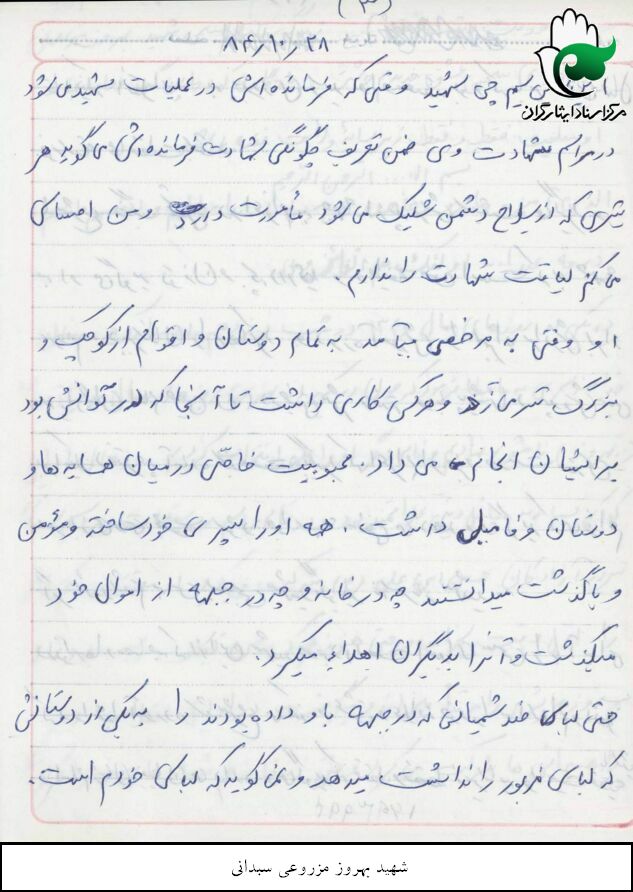 (۳)
۸۴/۱۰/۲۸
مرکز اسناد ایثارگران
سیم چی شهید وقتی که فرمانده اش در عملیات شهید می شود
در مراسم شهادت وی ضمن تعریف چگونگی شهادت فرمانده اش می گوید هر
تیری که از سلاح دشمن شلیک می شود مأموریت دارد و من احساس
می کنم لیاقت شهادت را ندارم.
او وقتی به مرخصی میآمد به تمام دوستان و اقوام از کوچک و
بزرگ سر می زد و هرکس کاری داشت تا آنجا که در توانش بود
برایشان انجام می داد. محبوبیت خاصّی در میان همسایه ها و
دوستان و فامیل داشت. همه او را پسری خودساخته و مؤمن
و باگذشت میدانستند چه در خانه و چه در جبهه از اموال خود
میگذشت و آنرا بدیگران اهداء میکرد.
حتی لباس ضدشیمیائی که در جبهه باو داده بودند را به یکی از دوستانش
که لباس مزبور را نداشت میدهد و نمی گوید که لباس خودم است.
شهید بهروز مزروعی سبدانی